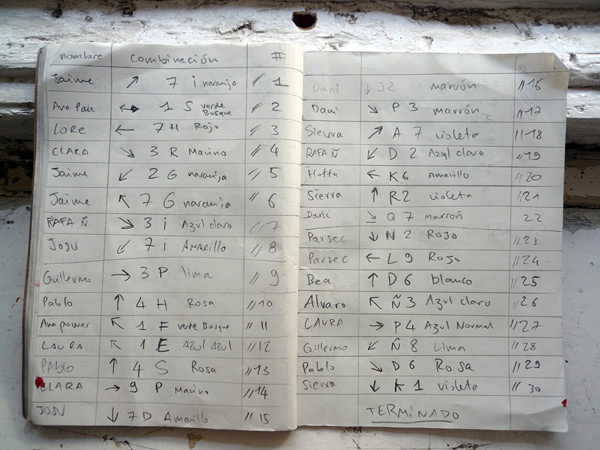 nombre combinación #
Jaime ↗ 7 i naranja // 1
Ana Pau ↔ 1 S verde Bosque // 2
LORE ← 7 H Rojo // 3
CLARA ↘ 3 R Marino // 4
Jaime ↙ 2 G naranja // 5
Jaime ↖ 7 G naranja // 6
RAFA Ñ ↘ 3 i Azul claro // 7
JOSU ↙ 7 I AMARILLO // 8
Guillermo → 3 P lima // 9
Pablo ↑ 4 H Rosa // 10
Ana ↖ 1 F verde Bosque // 11
LAURA ↖ 1 E AZUL AZUL // 12
PAblo ↑ 4 S Rosa // 13
CLARA → 9 P Marino // 14
JOSU ↓ 7 D Amarillo // 15
Dani ↓ J2 marrón // 16
Dani ↘ P 3 marrón // 17
Sierra ↗ A 7 violeta // 18
RAFA Ñ ↙ D 2 Azul claro // 19
Hotta ← K6 Amarillo // 20
Sierra ↑ R2 violeta // 21
Dani ↘ Q 7 marrón 22
Parsec ↓ N 2 Rojo // 23
Parsec ← L 9 Rojo // 24
Bea ↑ D 6 blanco // 25
Alvaro ↖ Ñ 3 Azul claro // 26
LAURA → P4 Azul Normal // 27
Guillermo ↙ Ñ 8 Lima // 28
Pablo ↘ D6 Rosa // 29
Sierra ↓ K 1 violeta // 30
TERMINADO